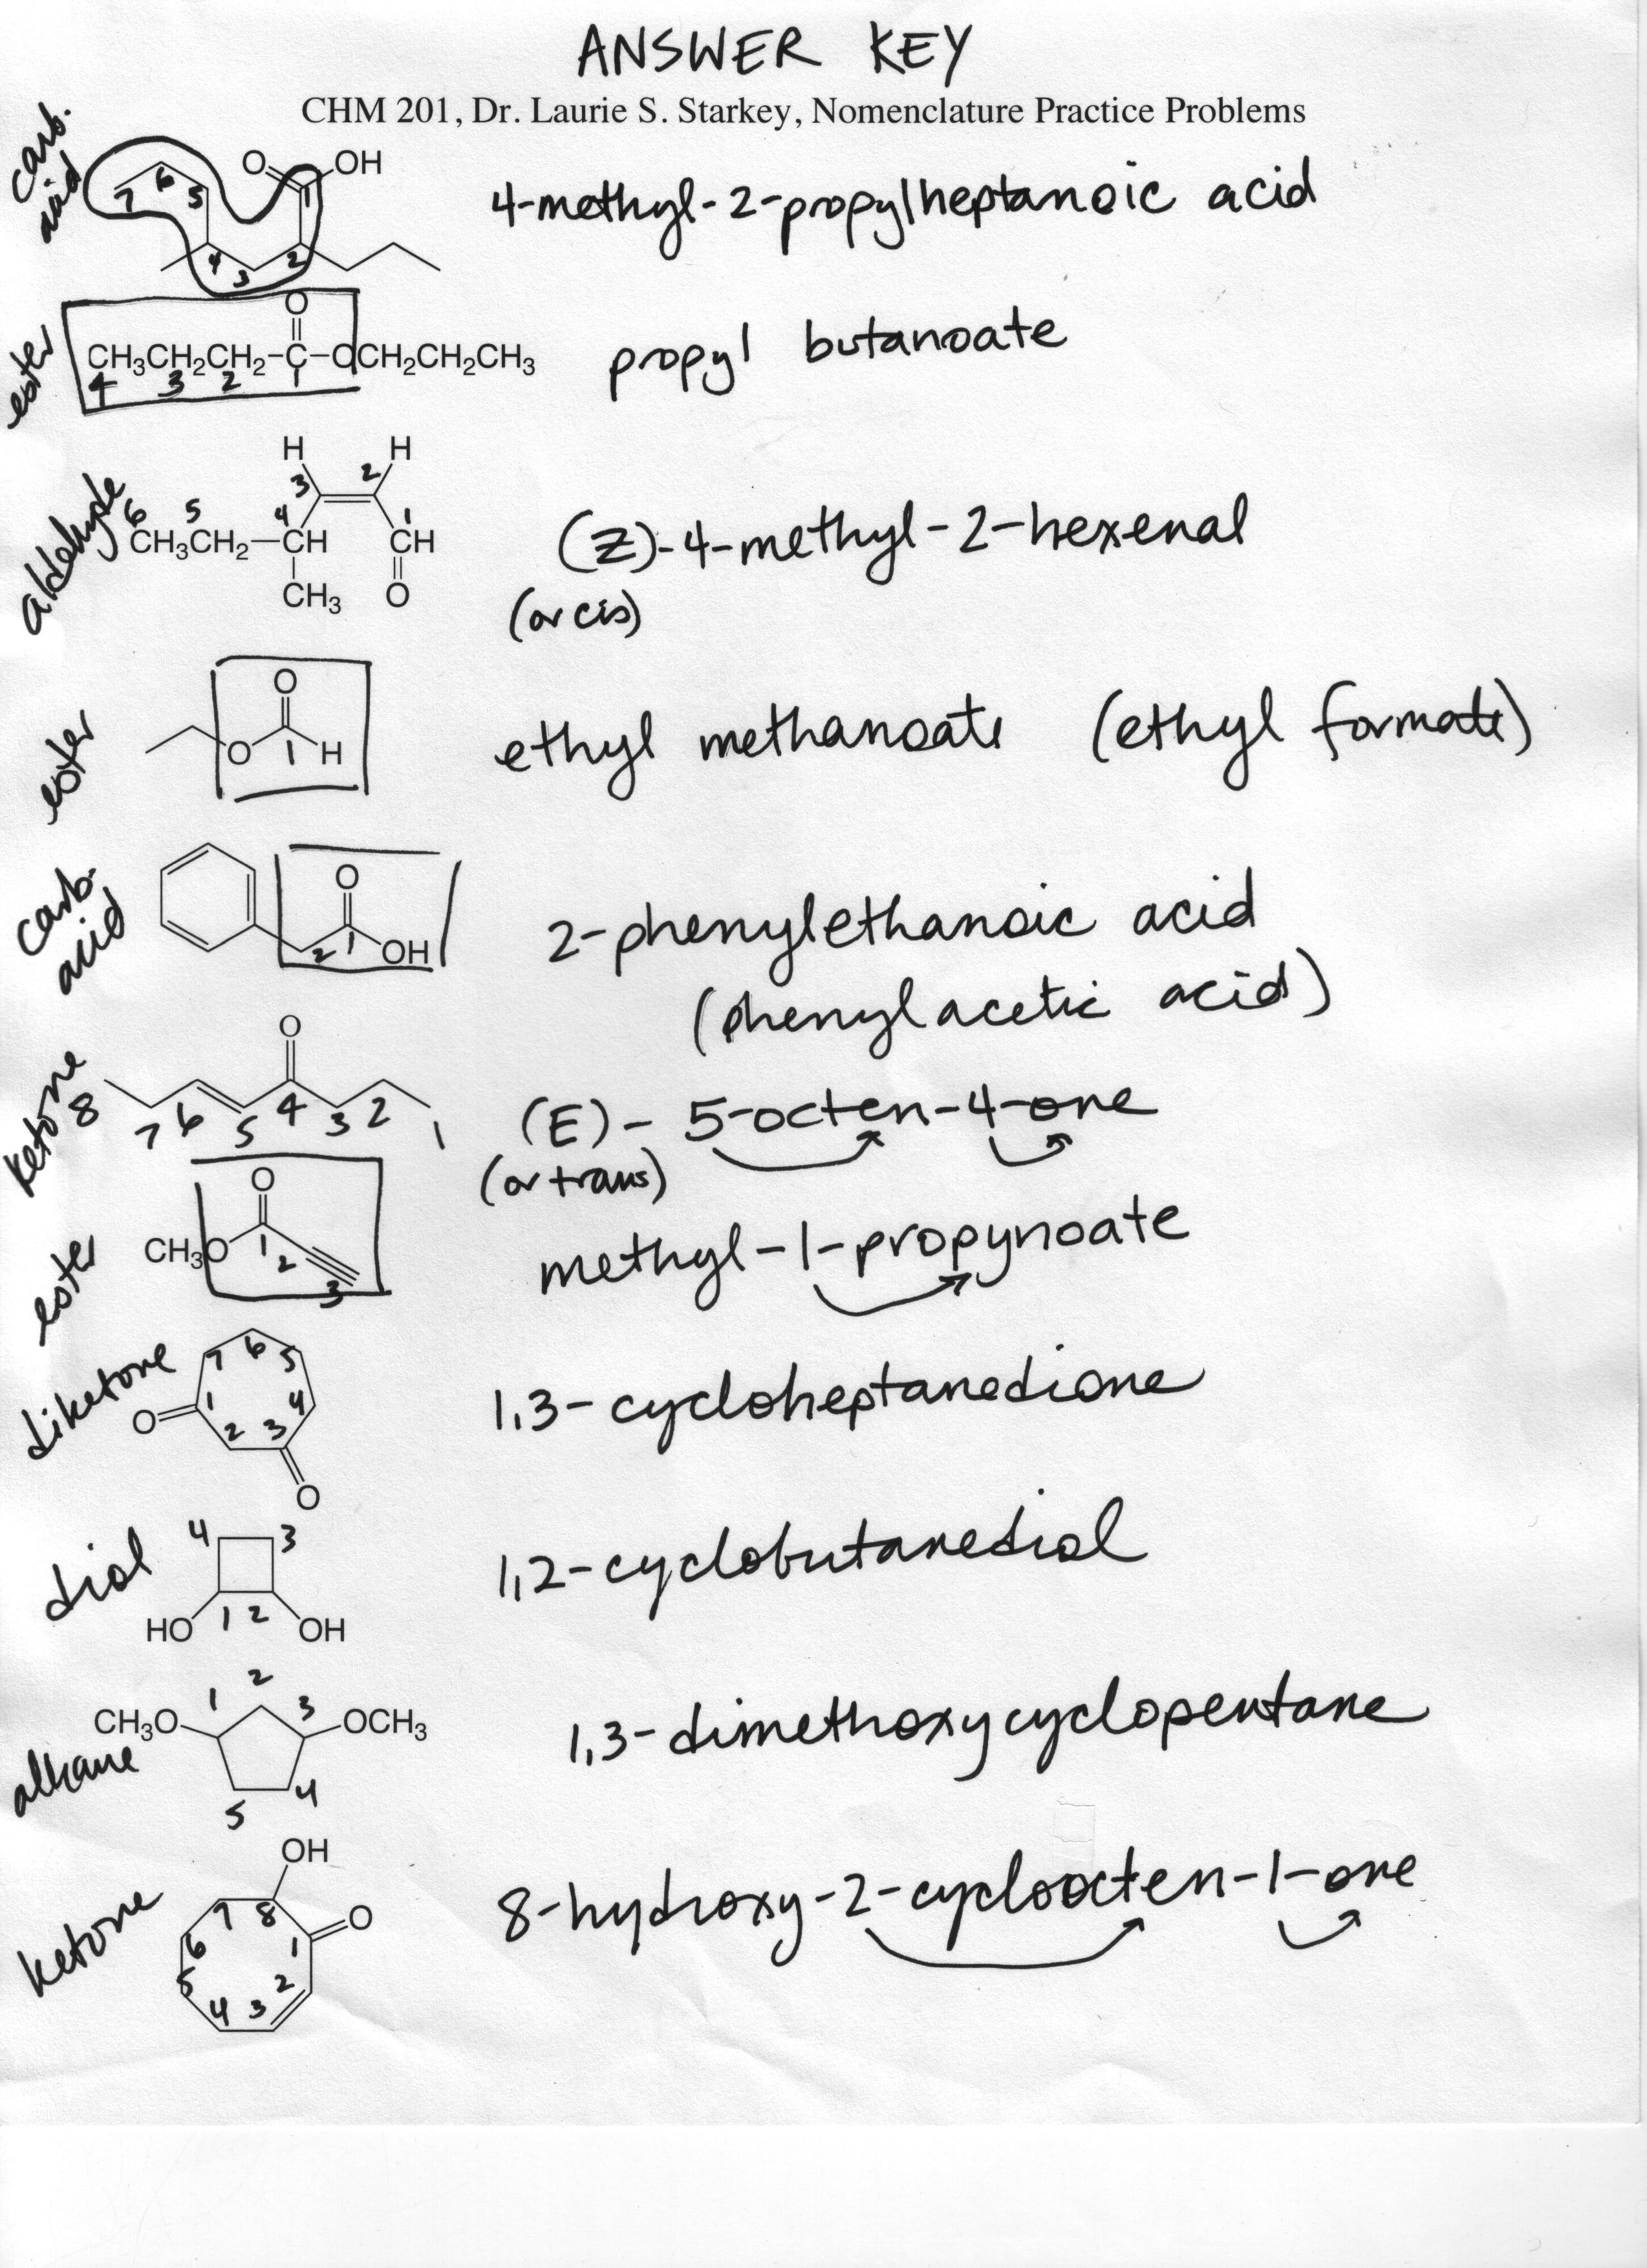 ANSWER KEY
CHM 201, Dr. Laurie S. Starkey, Nomenclature Practice Problems
carb. acid
O OH
7 6 5 4 3 2 1
4-methyl-2-propylheptanoic acid
ester
O
CH3CH2CH2-C-OCH2CH2CH3
4 3 2 1
propyl butanoate
aldehyde
H H
3 2
6 5 4 1
CH3CH2-CH CH
CH3 O
(Z)-4-methyl-2-hexenal
(or cis)
ester
O
O 1 H
ethyl methanoate (ethyl formate)
carb. acid
O
2 1 OH
2-phenylethanoic acid
(phenylacetic acid)
ketone
O
8 7 6 5 4 3 2 1
(E)- 5-octen-4-one
(or trans)
ester
O
CH3O 1 2 3
methyl-1-propynoate
diketone
7 6 5
1 4
O 2 3
O
1,3-cycloheptanedione
diol
4 3
HO 1 2 OH
1,2-cyclobutanediol
alkane
1 2 3
CH3O OCH3
5 4
1,3-dimethoxycyclopentane
ketone
OH
7 8 O
6 1
5 2
4 3
8-hydroxy-2-cycloocten-1-one